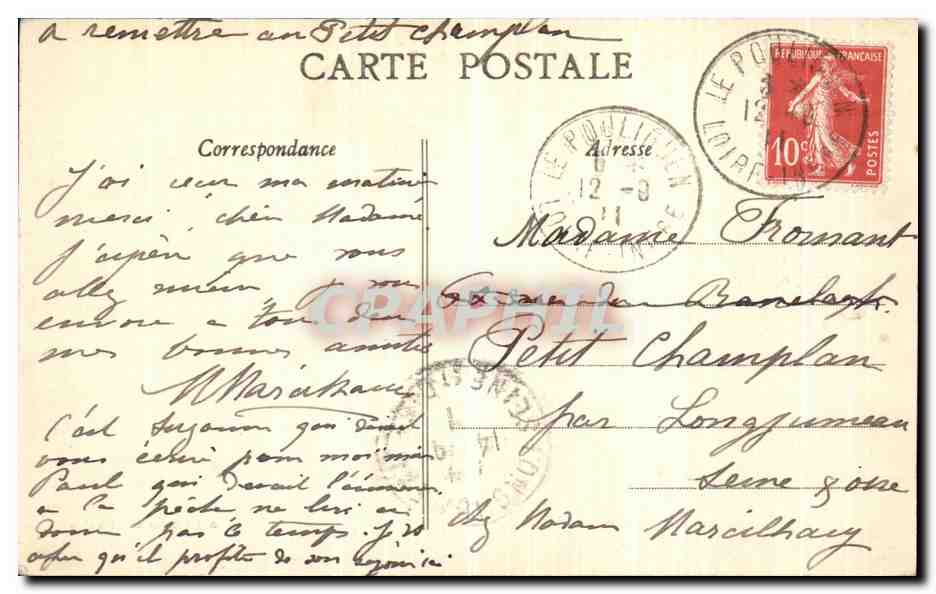 a remettre au Petit Champlan
CARTE POSTALE
Correspondance
Adresse
REPUBLIQUE FRANÇAISE
10c
POSTES
LE POULIGUEN
12 -9
11
LOIRE-INFRE
LE POULIGUEN
12 -9
LOIRE
J'ai ma
merci chère Madame
J'espère que vous
allez mieux je vous
envoie a tous deux
mes bonnes amitiés
M Marcilhacy
C'est Suzanne qui devait
vous écrire pour moi mais
Paul qui devait l'emmener
a la pêche ne lui en
donne pas le temps.
afin qu'il profite de son séjour ici
Madame Fromant
Ranelagh
Petit Champlan
par Longjumeau
Seine & oise
chez Madame Marcilhacy
LONGJUMEAU
14
CPAPHIL